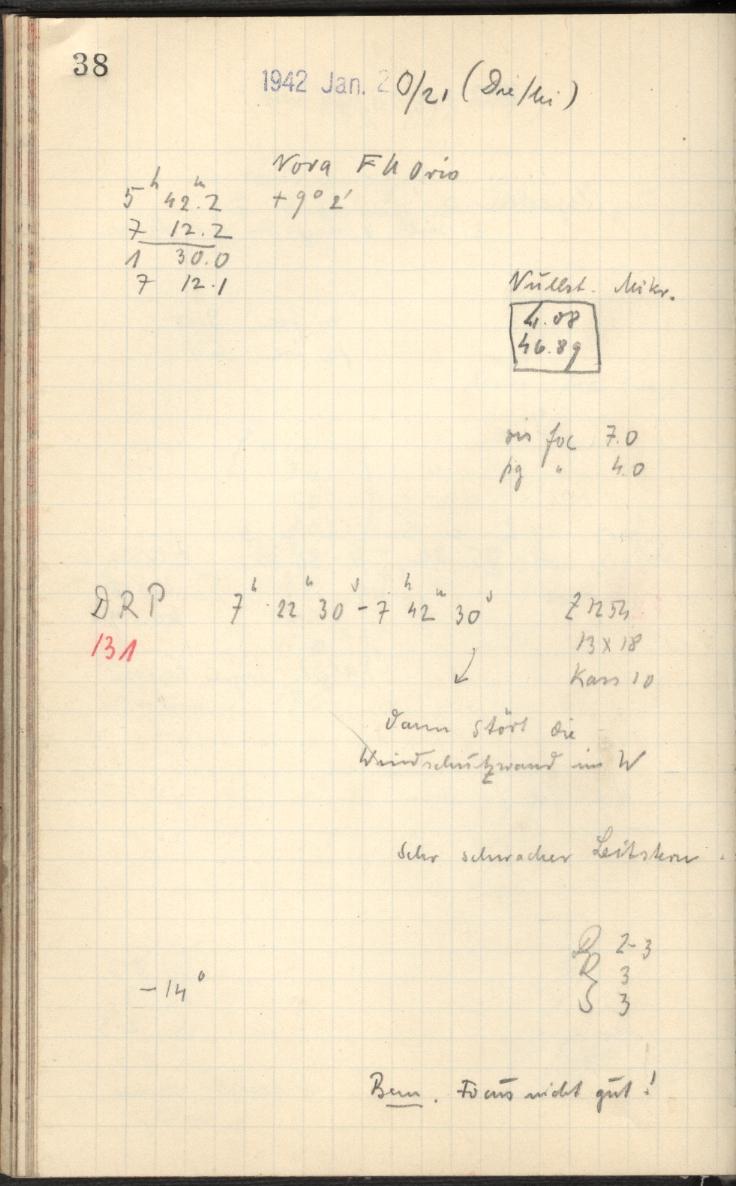 38
1942 Jan. 20/21 (Die/Mi)
Nova FU Orio
5ʰ 42ᵐ.2 + 9° 2'
7 12.2
1 30.0
7 12.1
Nullst. Mikr.
4.08
46.89
vis foc 7.0
pg " 4.0
DRP 7ʰ 22ᵐ 30ˢ - 7ʰ 42ᵐ 30ˢ Z 1254
131 13 x 18
↙ Kass 10
Dann stört die
Windschutzwand im W
Sehr schwacher Leitstern.
D 2-3
R 3
-14° S 3
Bem. Focus nicht gut!